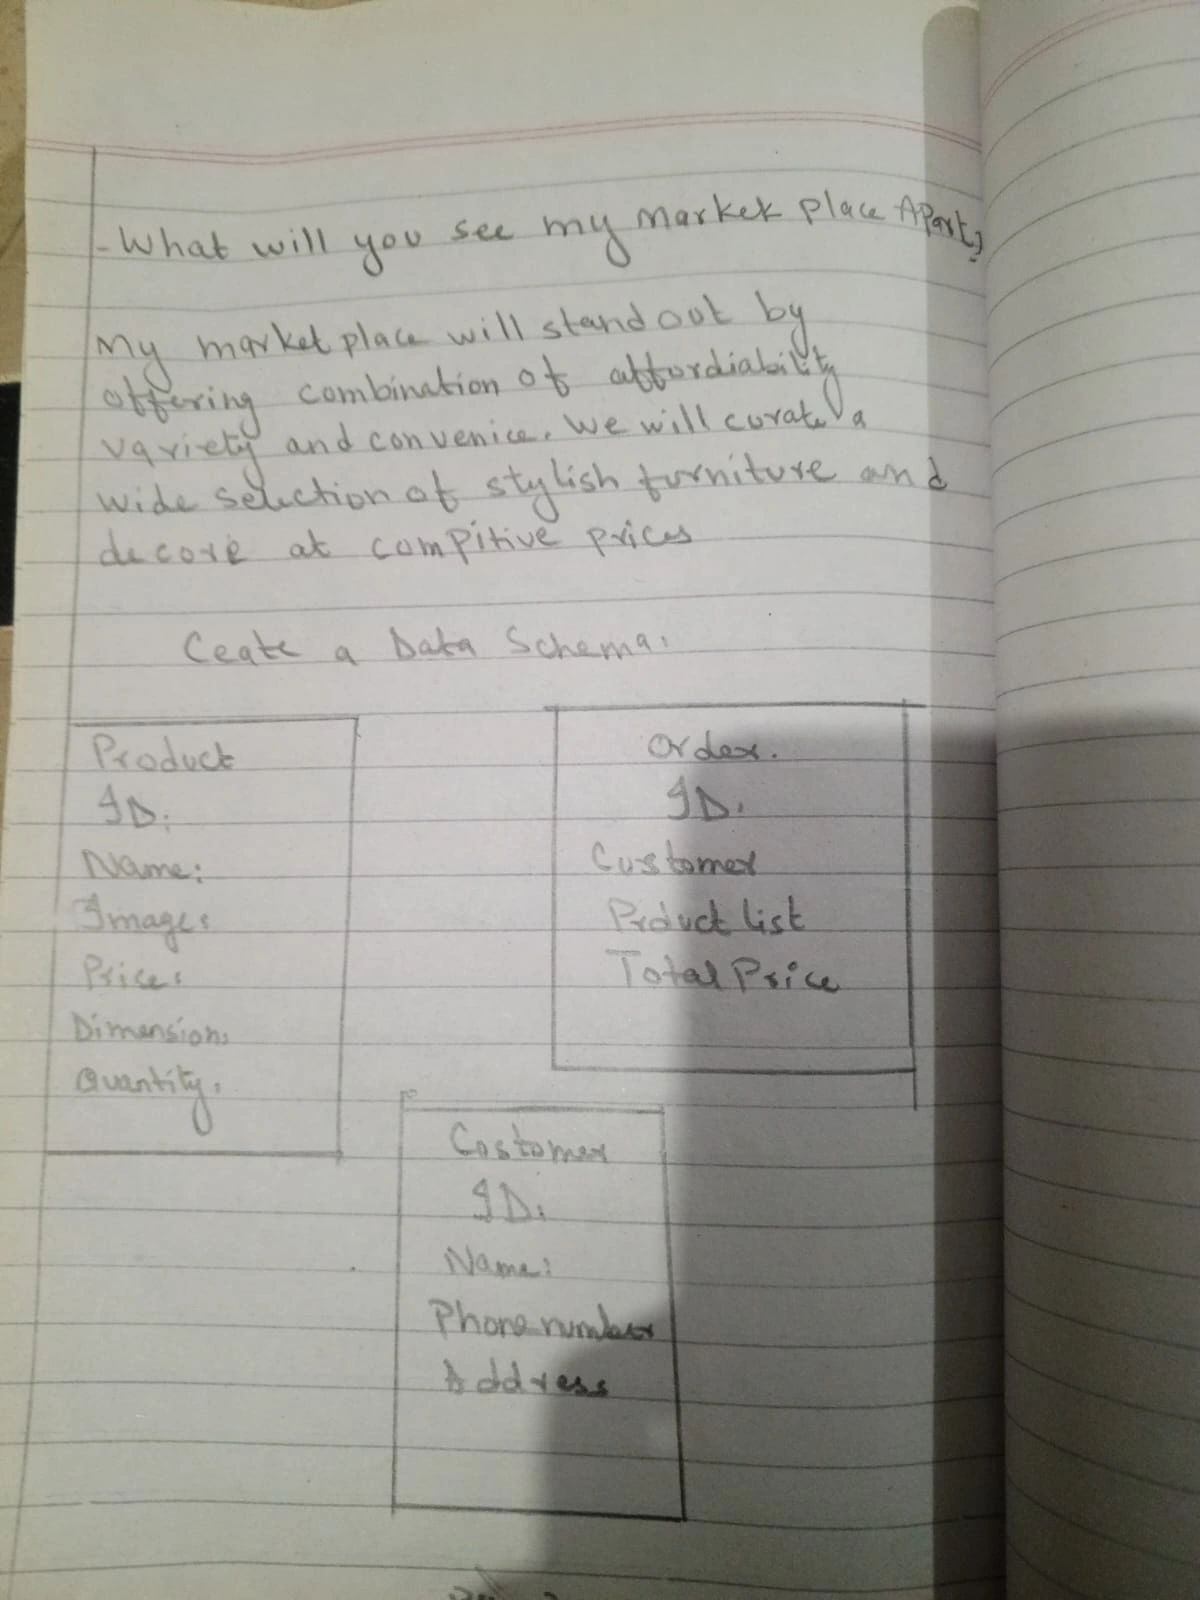 - What will you see my market place Apart,
My market place will stand out by
offering combination of affordiability
variety and convenice. We will curate a
wide selection of stylish furniture and
decore at compitive prices
Ceate a Data Schema.
Product
ID:
Name:
Image:
Price:
Dimension:
Quantity.
Order.
ID.
Customer
Prduct list
Total Price
Costomer
ID:
Name:
Phone number
Address